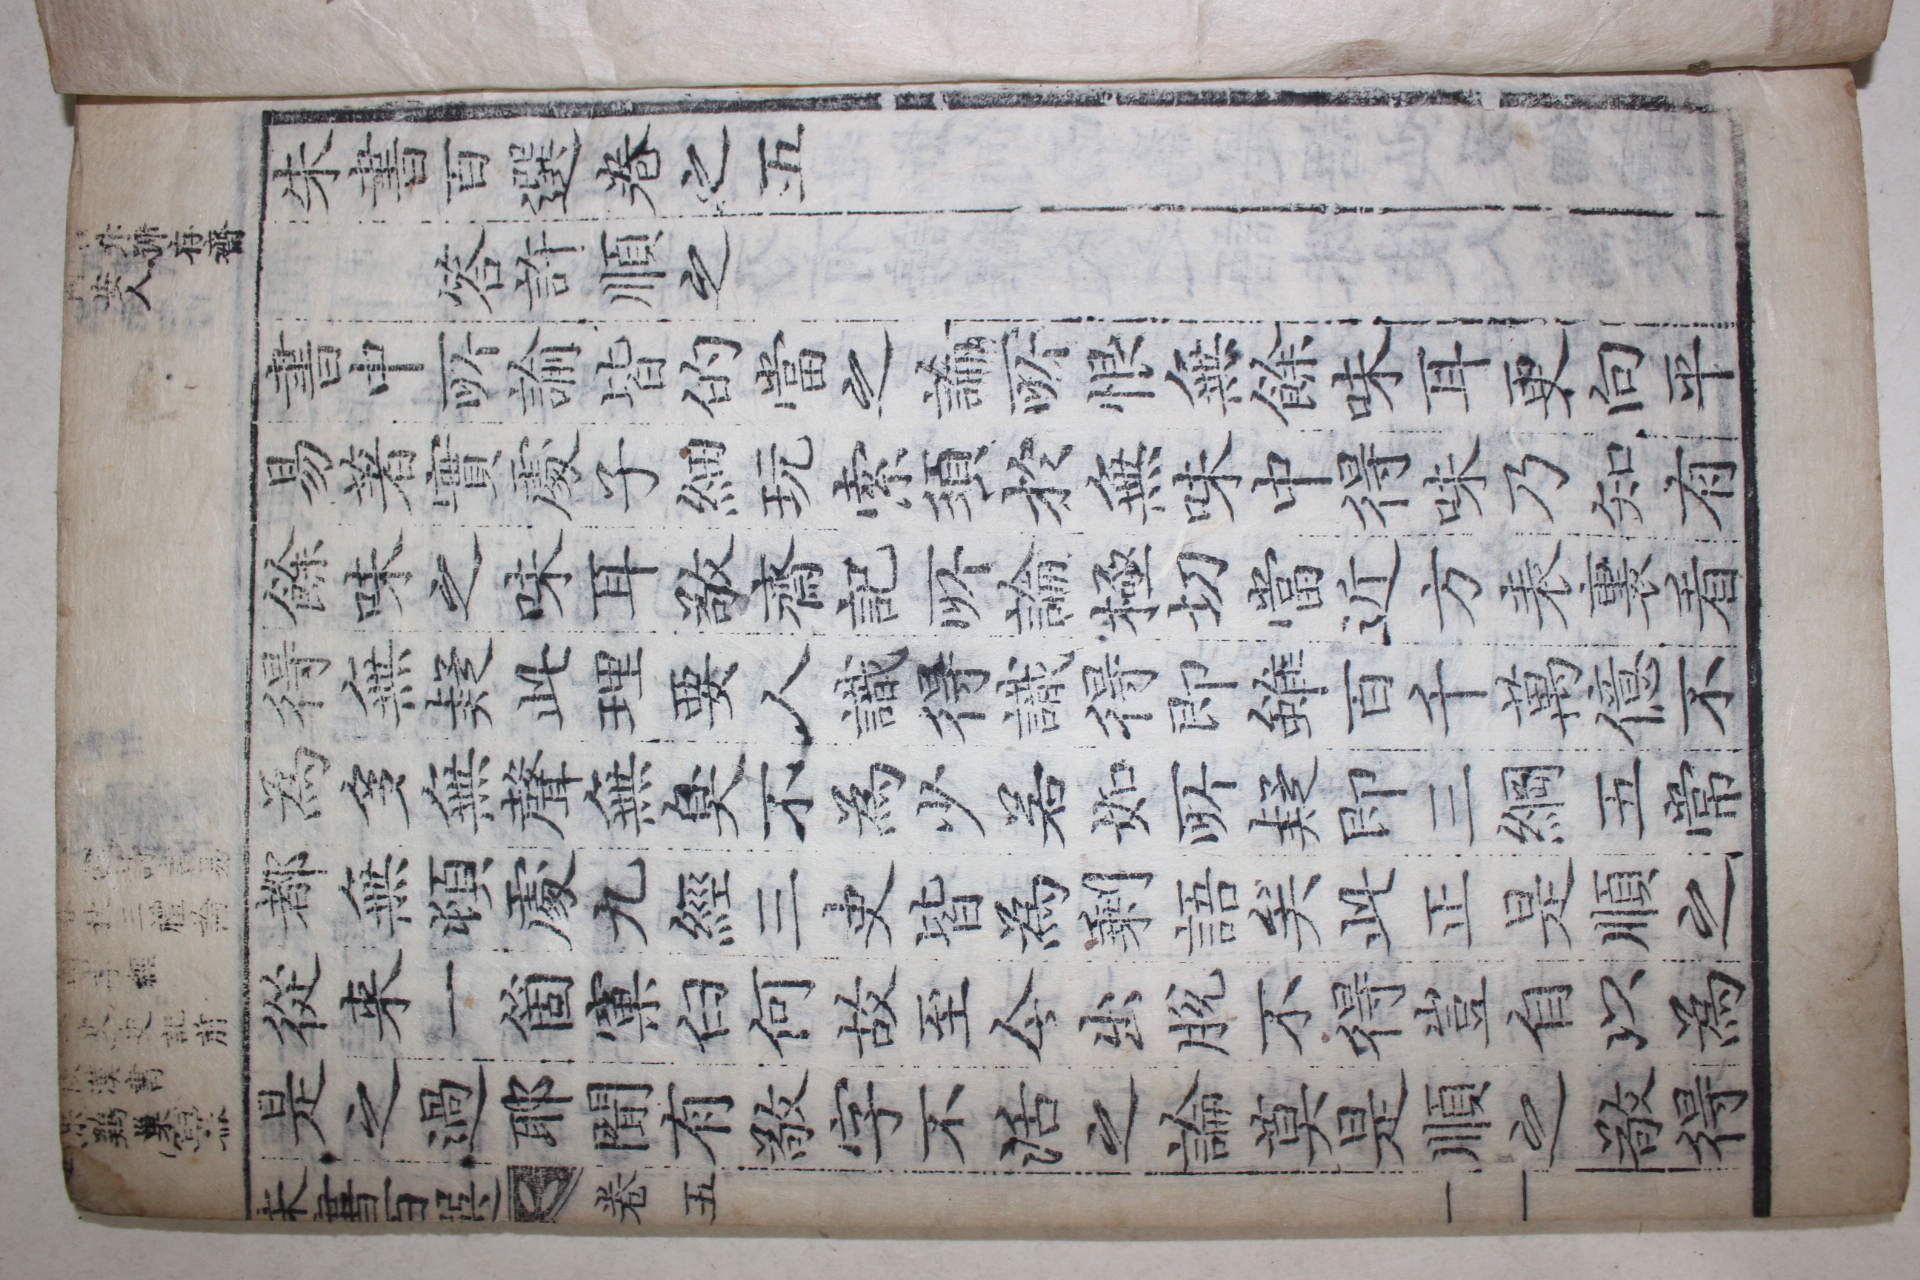 朱書百選卷之五
答許順之
書中所論皆的當之論所恨無餘味耳更向平
易著實處子細玩索須於無味中得味乃知有
餘味之味耳敬齋記所論極切當近方表裏看
得無疑此理要人識得識得即雖百千萬億不
為多無聲無臭不為少若如所疑即三綱五常
都無頓處九經三史皆為剩語矣此正是順之
從来一箇窠臼何故至今出脫不得豈自以為
是之過耶聞有敬字不活之論莫是順之敬得
朱書百選 卷五 一
存齋
安人
三禮論
史記前
漢書